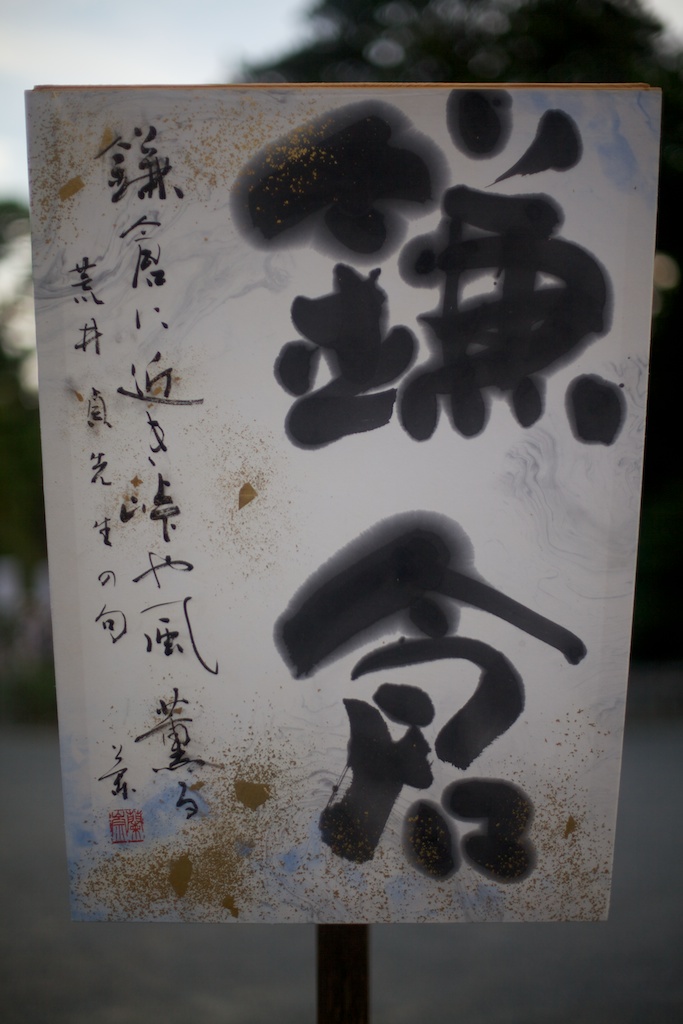 鎌倉
鎌倉に近き峠や風薫る
荒井貞先生の句